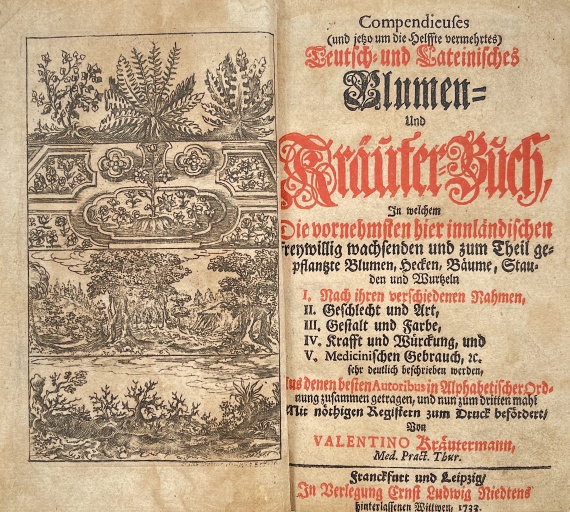 Compendieuses
(und jetzo um die Helffte vermehrtes)
Teutsch- und Lateinisches
Blumen-
Und
Kräuter-Buch,
In welchem
Die vornehmsten hier innländischen
freywillig wachsenden und zum Theil ge-
pflantzte Blumen, Hecken, Bäume, Stau-
den und Wurtzeln
I. Nach ihren verschiedenen Nahmen,
II. Geschlecht und Art,
III. Gestalt und Farbe,
IV. Krafft und Würckung, und
V. Medicinischen Gebrauch, ꝛc.
sehr deutlich beschrieben werden,
Aus denen besten Autoribus in Alphabetischer Ord-
nung zusammen getragen, und nun zum dritten mahl
Mit nöthigen Registern zum Druck befördert/
Von
VALENTINO Kräutermann,
Med. Pract. Thur.
Franckfurt und Leipzig/
In Verlegung Ernst Ludwig Niedtens
hinterlassenen Wittwen, 1733.